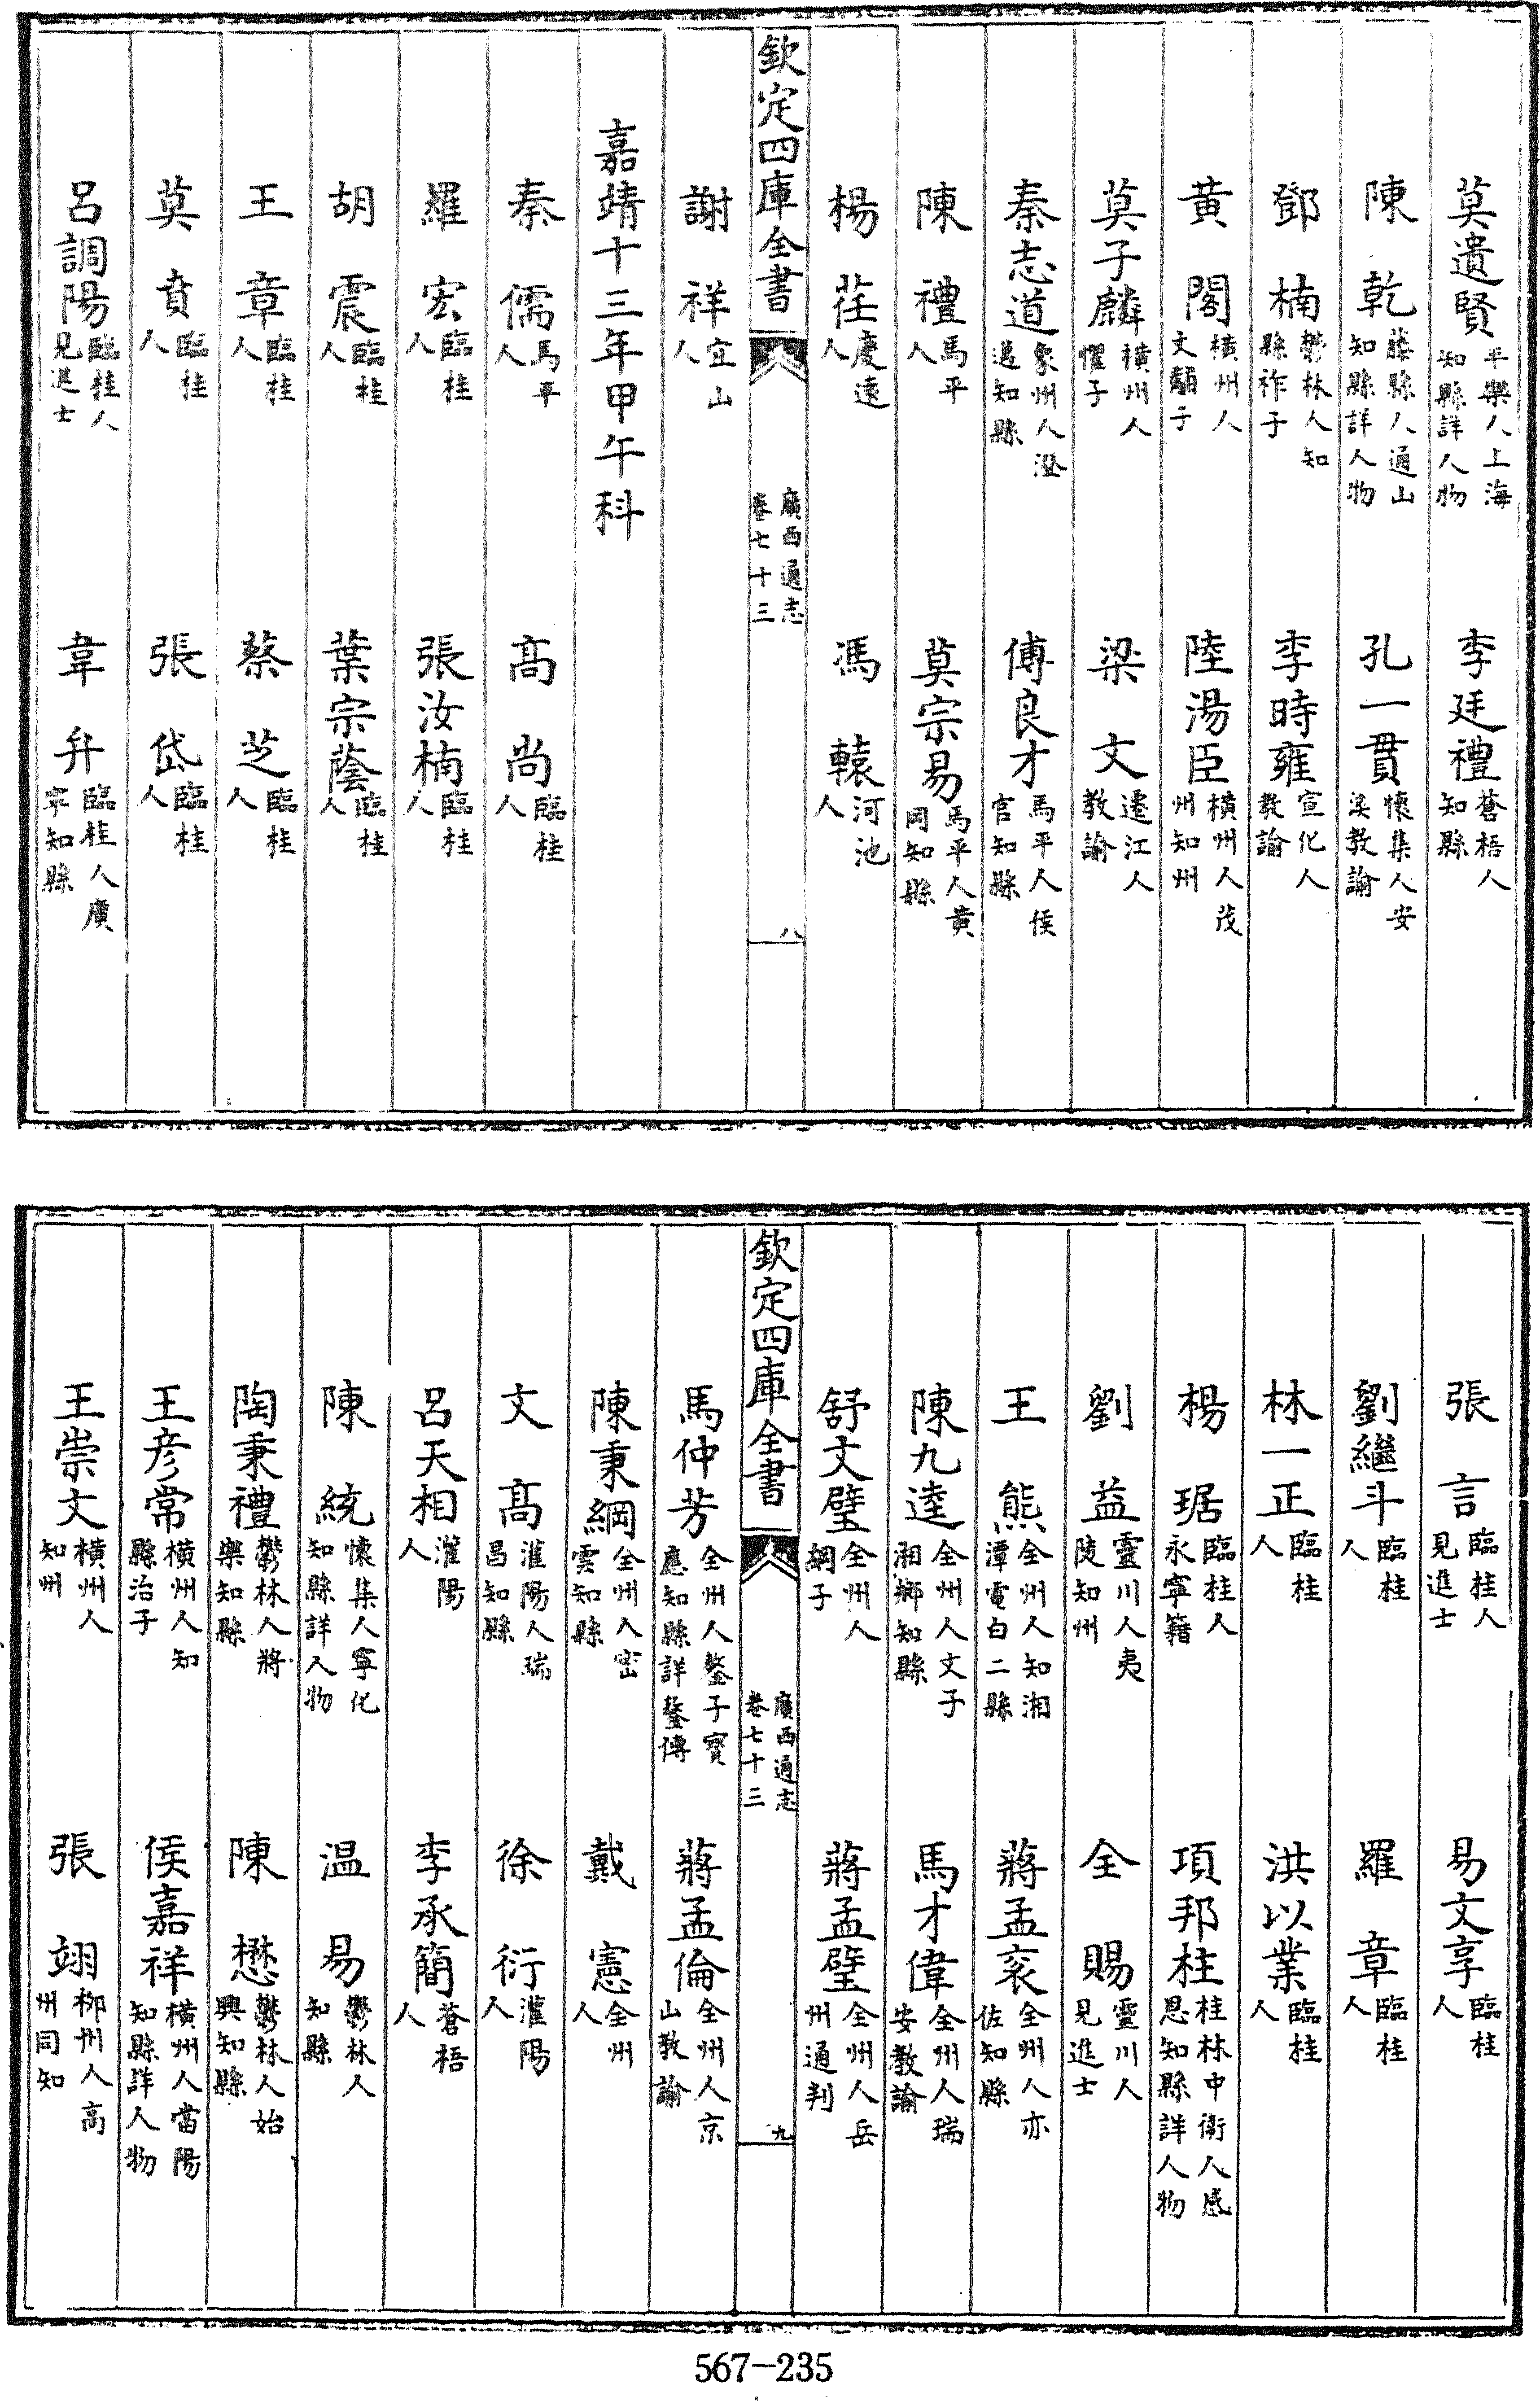 莫遺賢平樂人上海知縣詳人物　李廷禮蒼梧人知縣
陳乾藤縣人通山知縣詳人物　孔一貫懷集人安梁教諭
鄧楠鬱林人知縣祚子　李時雍宣化人教諭
黃閣橫州人文黼子　陸湯臣橫州人茂州知州
莫子麟橫州人懼子　梁文遷江人教諭
秦志道象州人澄邁知縣　傅良才馬平人侯官知縣
陳禮馬平人　莫宗易馬平人黄岡知縣
楊茬慶遠人　馮轅河池人
欽定四庫全書　廣西通志卷七十三　八
謝祥宜山人
嘉靖十三年甲午科
秦儒馬平人　高尚臨桂人
羅宏臨桂人　張汝楠臨桂人
胡震臨桂人　葉宗蔭臨桂人
王章臨桂人　蔡芝臨桂人
莫賁臨桂人　張岱臨桂人
呂調陽臨桂人見進士　韋弁臨桂人廣寧知縣
張言臨桂人見進士　易文享臨桂人
劉繼斗臨桂人　羅章臨桂人
林一正臨桂人　洪以業臨桂人
楊琚臨桂人永寧籍　項邦柱桂林中衛人感恩知縣詳人物
劉益靈川人夷陵知州　全賜靈川人見進士
王熊全州人知湘潭電白二縣　蔣孟衮全州人亦佐知縣
陳九逵全州人文子湘鄉知縣　馬才偉全州人瑞安教諭
舒文璧全州人綱子　蔣孟璧全州人岳州通判
欽定四庫全書　廣西通志卷七十三　九
馬仲芳全州人鏊子寳應知縣詳鏊傳　蔣孟倫全州人京山教諭
陳秉綱全州人密雲知縣　戴憲全州人
文高灌陽人瑞昌知縣　徐衍灌陽人
呂天相灌陽人　李承簡蒼梧人
陳統懷集人寧化知縣詳人物　温易鬱林人知縣
陶秉禮鬱林人將樂知縣　陳懋鬱林人始興知縣
王彦常橫州人知縣治子　侯嘉祥橫州人當陽知縣詳人物
王崇文橫州人知州　張翊柳州人高州同知
567-235